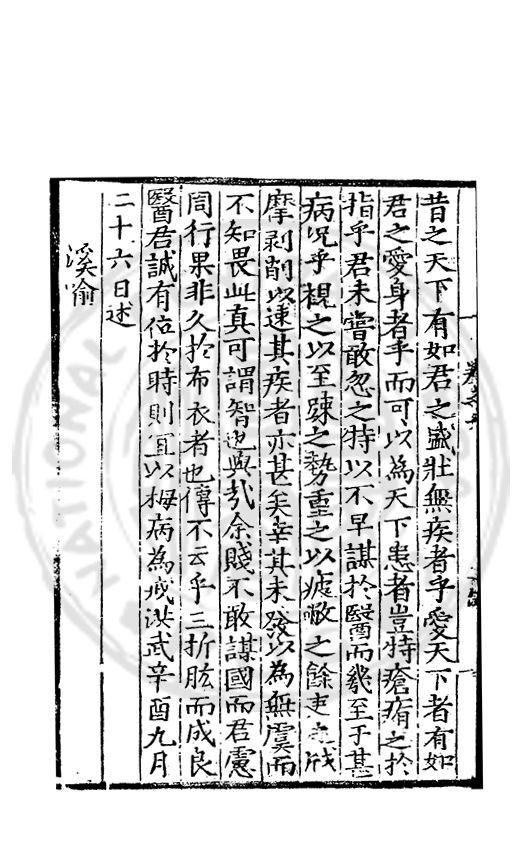 昔之天下有如君之盛壯無疾者乎愛天下者有如
君之愛身者乎而可以為天下患者豈特瘡痏之於
指乎君未嘗敢忽之特以不早謀於醫而幾至于甚
病况乎視之以至踈之勢重之以疲敝之餘吏之戕
摩剥削以速其疾者亦甚矣幸其未發以為無虞而
不知畏此真可謂智也與哉余賤不敢謀國而君慮
周行果非久於布衣者也傳不云乎三折肱而成良
醫君誠有位於時則宜以拇病為戒洪武辛酉九月
二十六日述
溪喻
NATIONAL